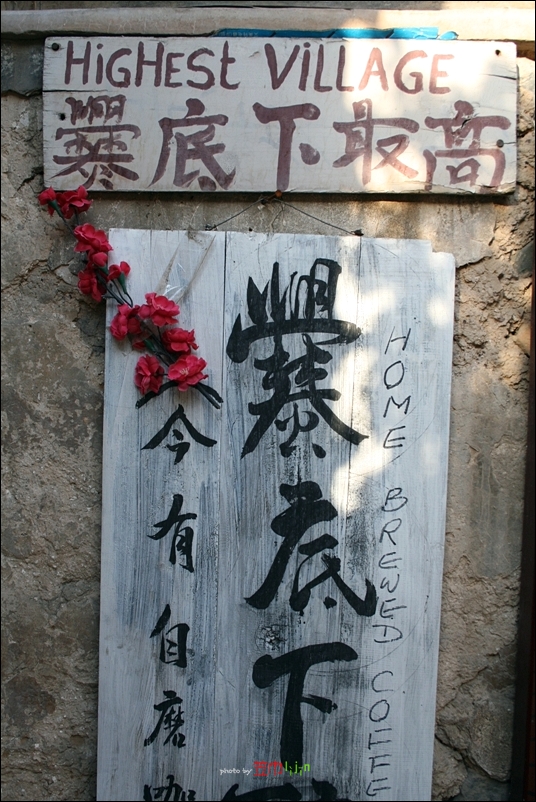 HiGHEST ViLLAGE
爨底下最高
HOME BREWED COFFE
爨底下
今有自磨咖
photo by